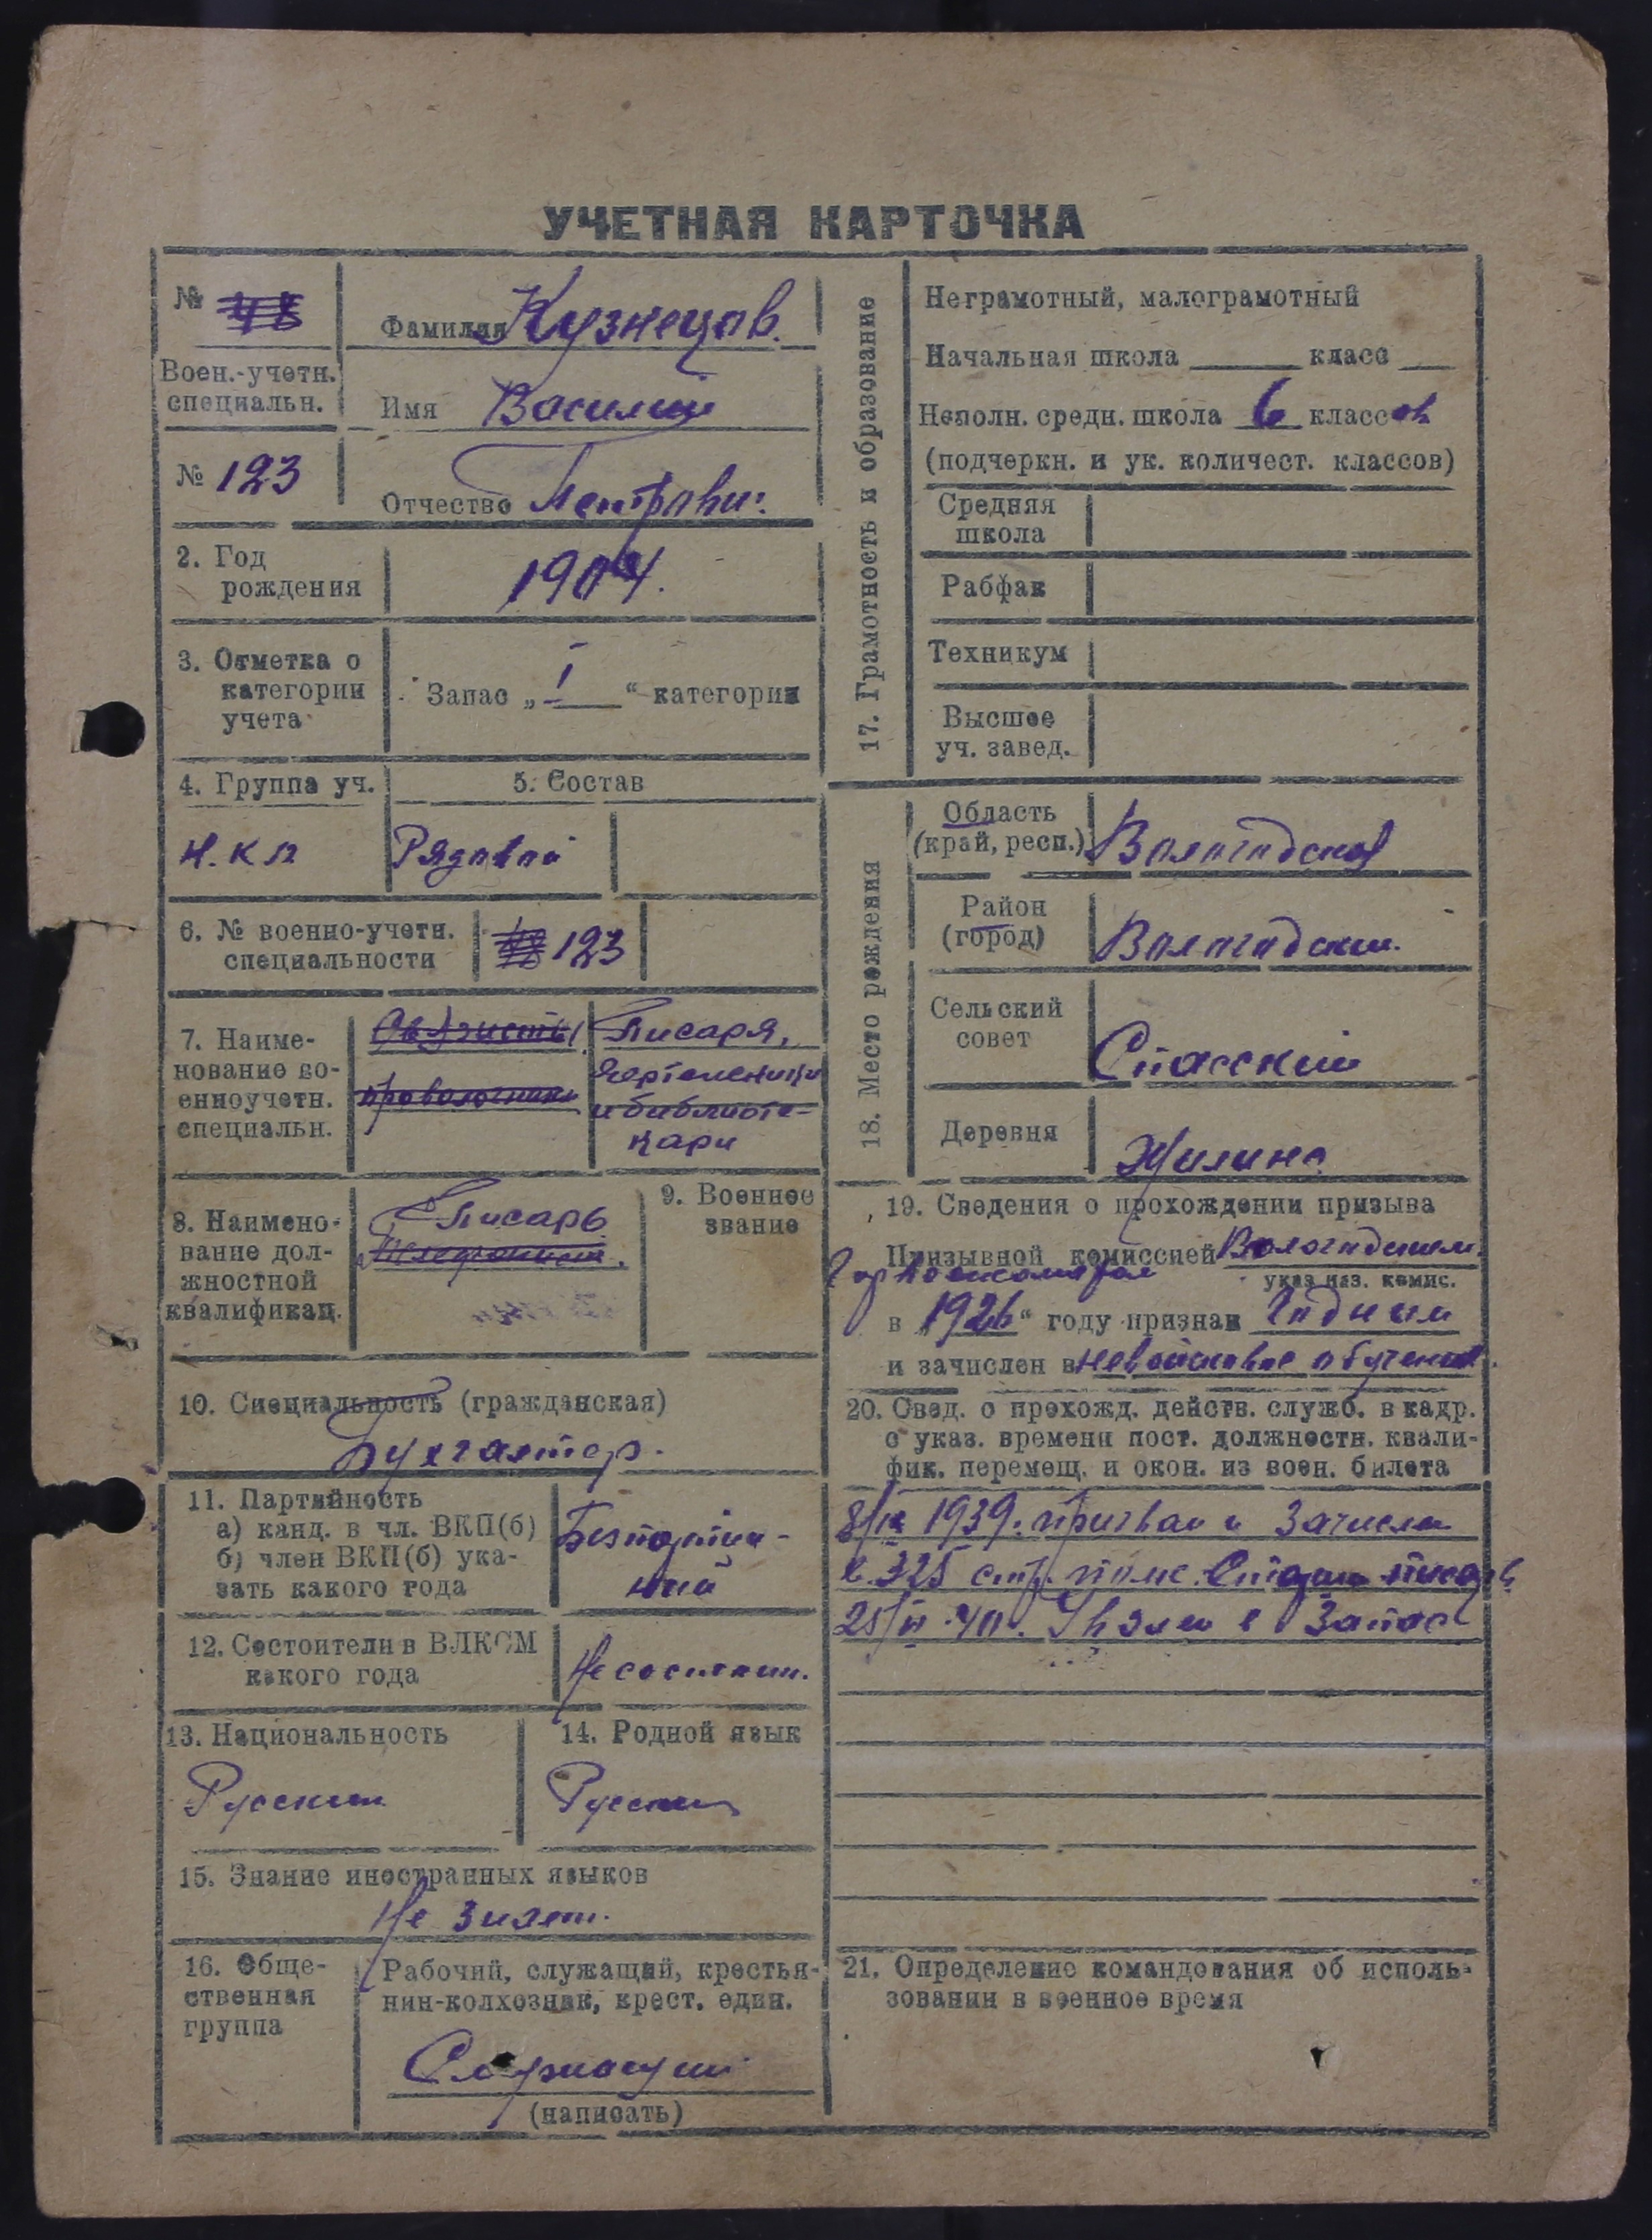 УЧЕТНАЯ КАРТОЧКА
№
Фамилия Кузнецов.
Воен.-учетн.
специальн.
Имя Василий
№ 123
Отчество Петрович.
2. Год
рождения
1904.
3. Отметка о
категории
учета
Запас „ I “ категории
4. Группа уч.
5. Состав
Н.К.О
Рядовой
6. № военно-учетн.
специальности
123
7. Наиме-
нование во-
енноучетн.
специальн.
Связисты
проволочники
Писаря,
чертежники
и библиоте-
кари
8. Наимено-
вание дол-
жностной
квалификац.
Писарь
Телефонист.
9. Военное
звание
10. Специальность (гражданская)
Бухгалтер.
11. Партийность
а) канд. в чл. ВКП(б)
б) член ВКП(б) ука-
зать какого года
Безпартий-
ный
12. Состоит ли в ВЛКСМ
какого года
Не состоит.
13. Национальность
Русский
14. Родной язык
Русский
15. Знание иностранных языков
Не знает.
16. Обще-
ственная
группа
Рабочий, служащий, крестья-
нин-колхозник, крест. един.
Служащий
(написать)
17. Грамотность и образование
Неграмотный, малограмотный
Начальная школа класс
Неполн. средн. школа 6 классов
(подчеркн. и ук. количест. классов)
Средняя
школа
Рабфак
Техникум
Высшее
уч. завед.
18. Место рождения
Область
(край, респ.)
Вологодская
Район
(город)
Вологодский.
Сельский
совет
Спасский
Деревня
Жилино
19. Сведения о прохождении призыва
Призывной комиссией Вологодским.
Горвоенкоматом
указ наз. комис.
в „1926“ году признан Годным
и зачислен в невойсковое обучение.
20. Свед. о прохожд. действ. служб. в кадр.
с указ. времени пост. должностн. квали-
фик. перемещ. и окон. из воен. билета
1939. призван и зачислен
в 325 стр. полк. Старш писарь
40. Уволен в Запас
21. Определение командования об исполь-
зовании в военное время